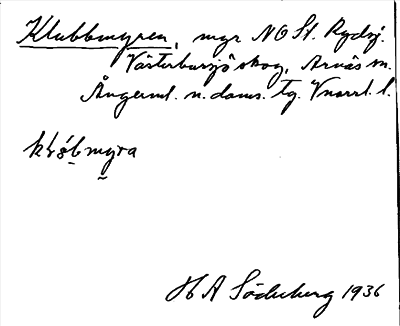 Klubbmyren, myr NO St. Rydsj.
Västerbursjö skog, Arnäs sn.
Ångerml. n. doms. tg. Vnorrl. l.
myra
H A Söderberg 1936